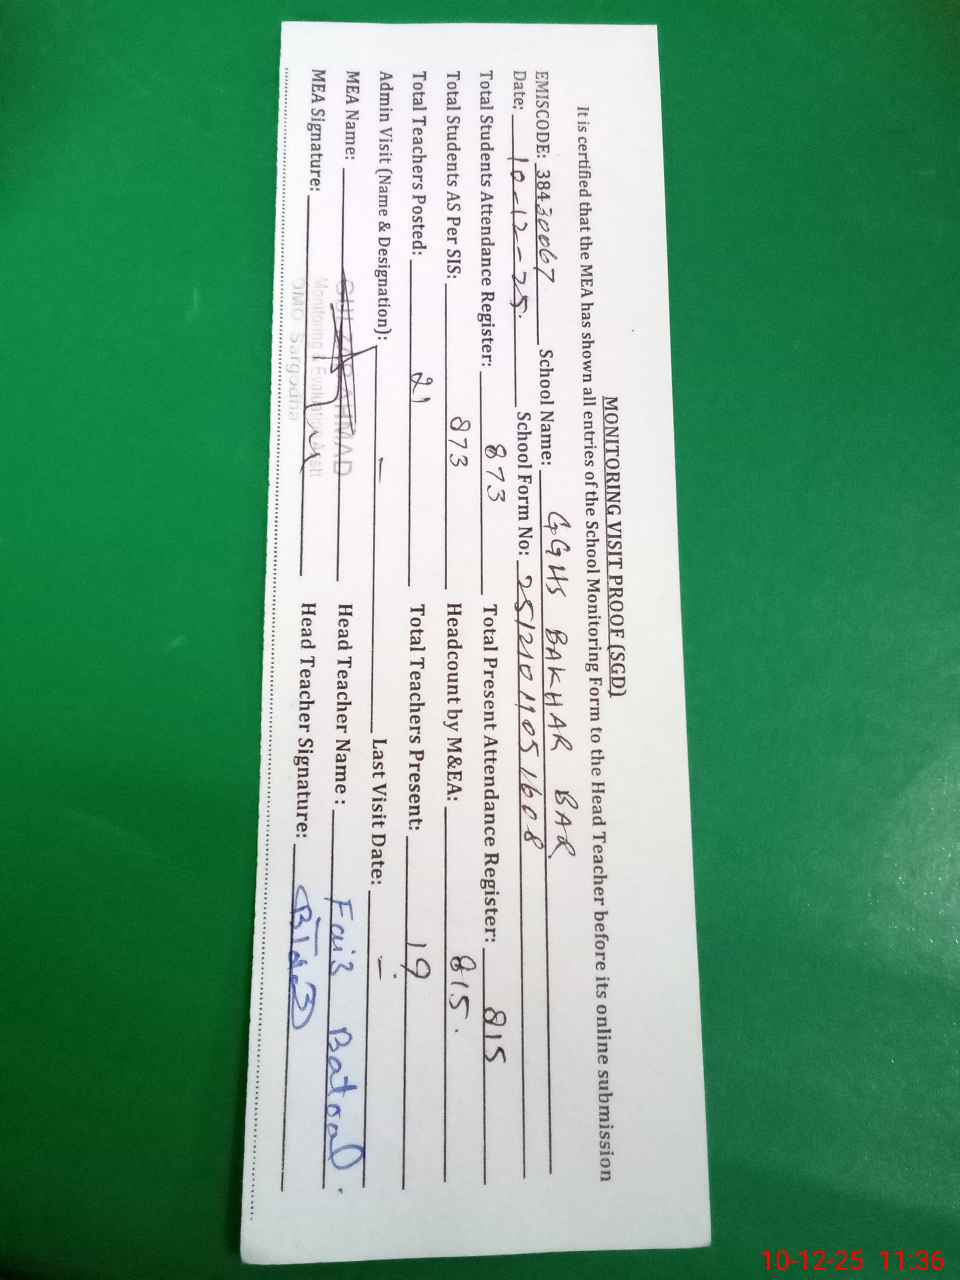 MONITORING VISIT PROOF (SGD)
It is certified that the MEA has shown all entries of the School Monitoring Form to the Head Teacher before its online submission
EMISCODE: 38430067 School Name: GGHS BAKHAR BAR
Date: 10-12-25. School Form No: 25121011051608
Total Students Attendance Register: 873 Total Present Attendance Register: 815
Total Students AS Per SIS: 873 Headcount by M&EA: 815.
Total Teachers Posted: 21 Total Teachers Present: 19
Admin Visit (Name & Designation): — Last Visit Date: —
MEA Name: AHMAD Head Teacher Name: Faiz Batool.
Monitoring & Evaluation
MEA Signature: Head Teacher Signature:
DMO Sargodha
10-12-25 11:36